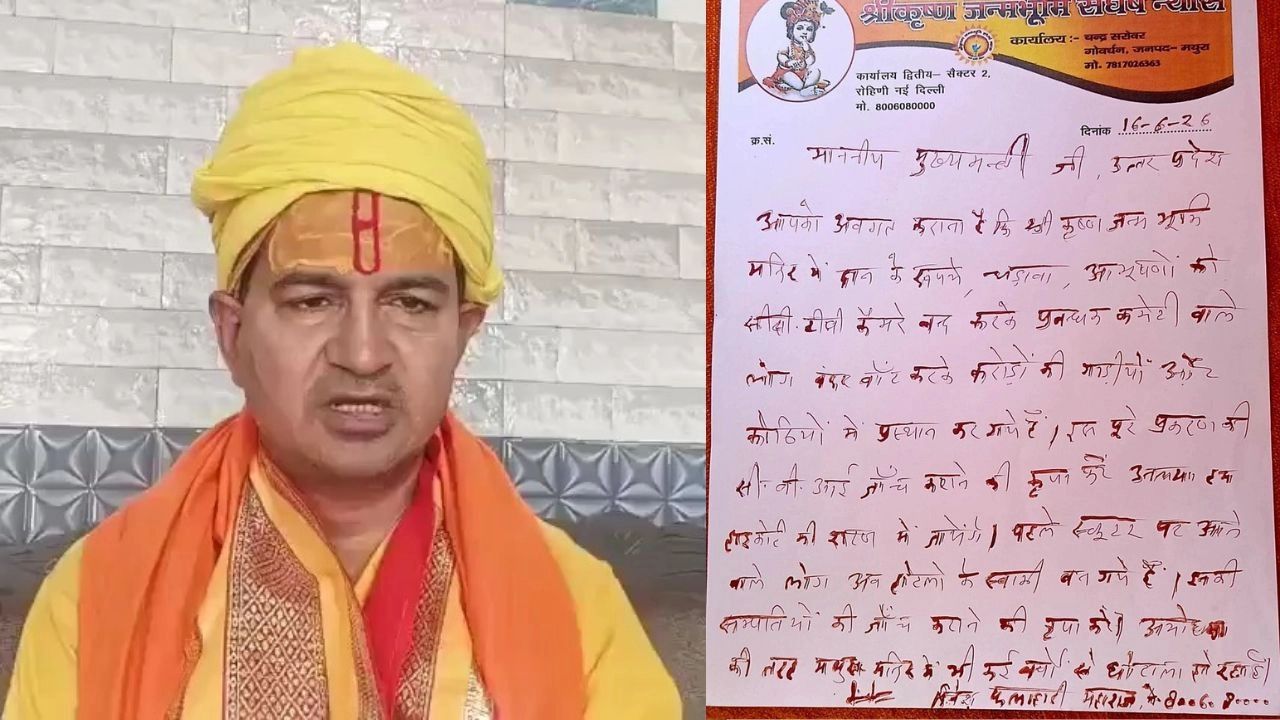 श्रीकृष्ण जन्मभूमि संघर्ष न्यास
कार्यालय :- चन्द्र सरोवर
गोवर्धन, जनपद- मथुरा
मो. 7817026363
कार्यालय द्वितीय– सैक्टर 2,
रोहिणी नई दिल्ली
मो. 8006080000
क्र.सं.
दिनांक 16-6-26
माननीय मुख्यमन्त्री जी, उत्तर प्रदेश
आपको अवगत कराना है कि श्री कृष्ण जन्म भूमि
मन्दिर में दान के रूपये, चढ़ावा, आभूषणों को
सी.सी. टीवी कैमरे बन्द करके प्रबन्धक कमेटी वाले
लोग बंदर बाँट करके करोड़ों की गाड़ीयों और
कोठियों में प्रस्थान कर गये हैं। इस पूरे प्रकरण की
सी. बी. आई जाँच कराने की कृपा करें अन्यथा हम
हाइकोर्ट की शरण में जायेंगे। पहले स्कूटर पर आने
वाले लोग अब होटलो के स्वामी बन गये हैं। इनकी
सम्पतियों की जाँच कराने की कृपा करें। अयोध्या
की तरह मथुरा मन्दिर में भी कई वर्षों से घोटाला हो रहा है।
दिनेश फलाहारी महाराज, मो. 8006080000